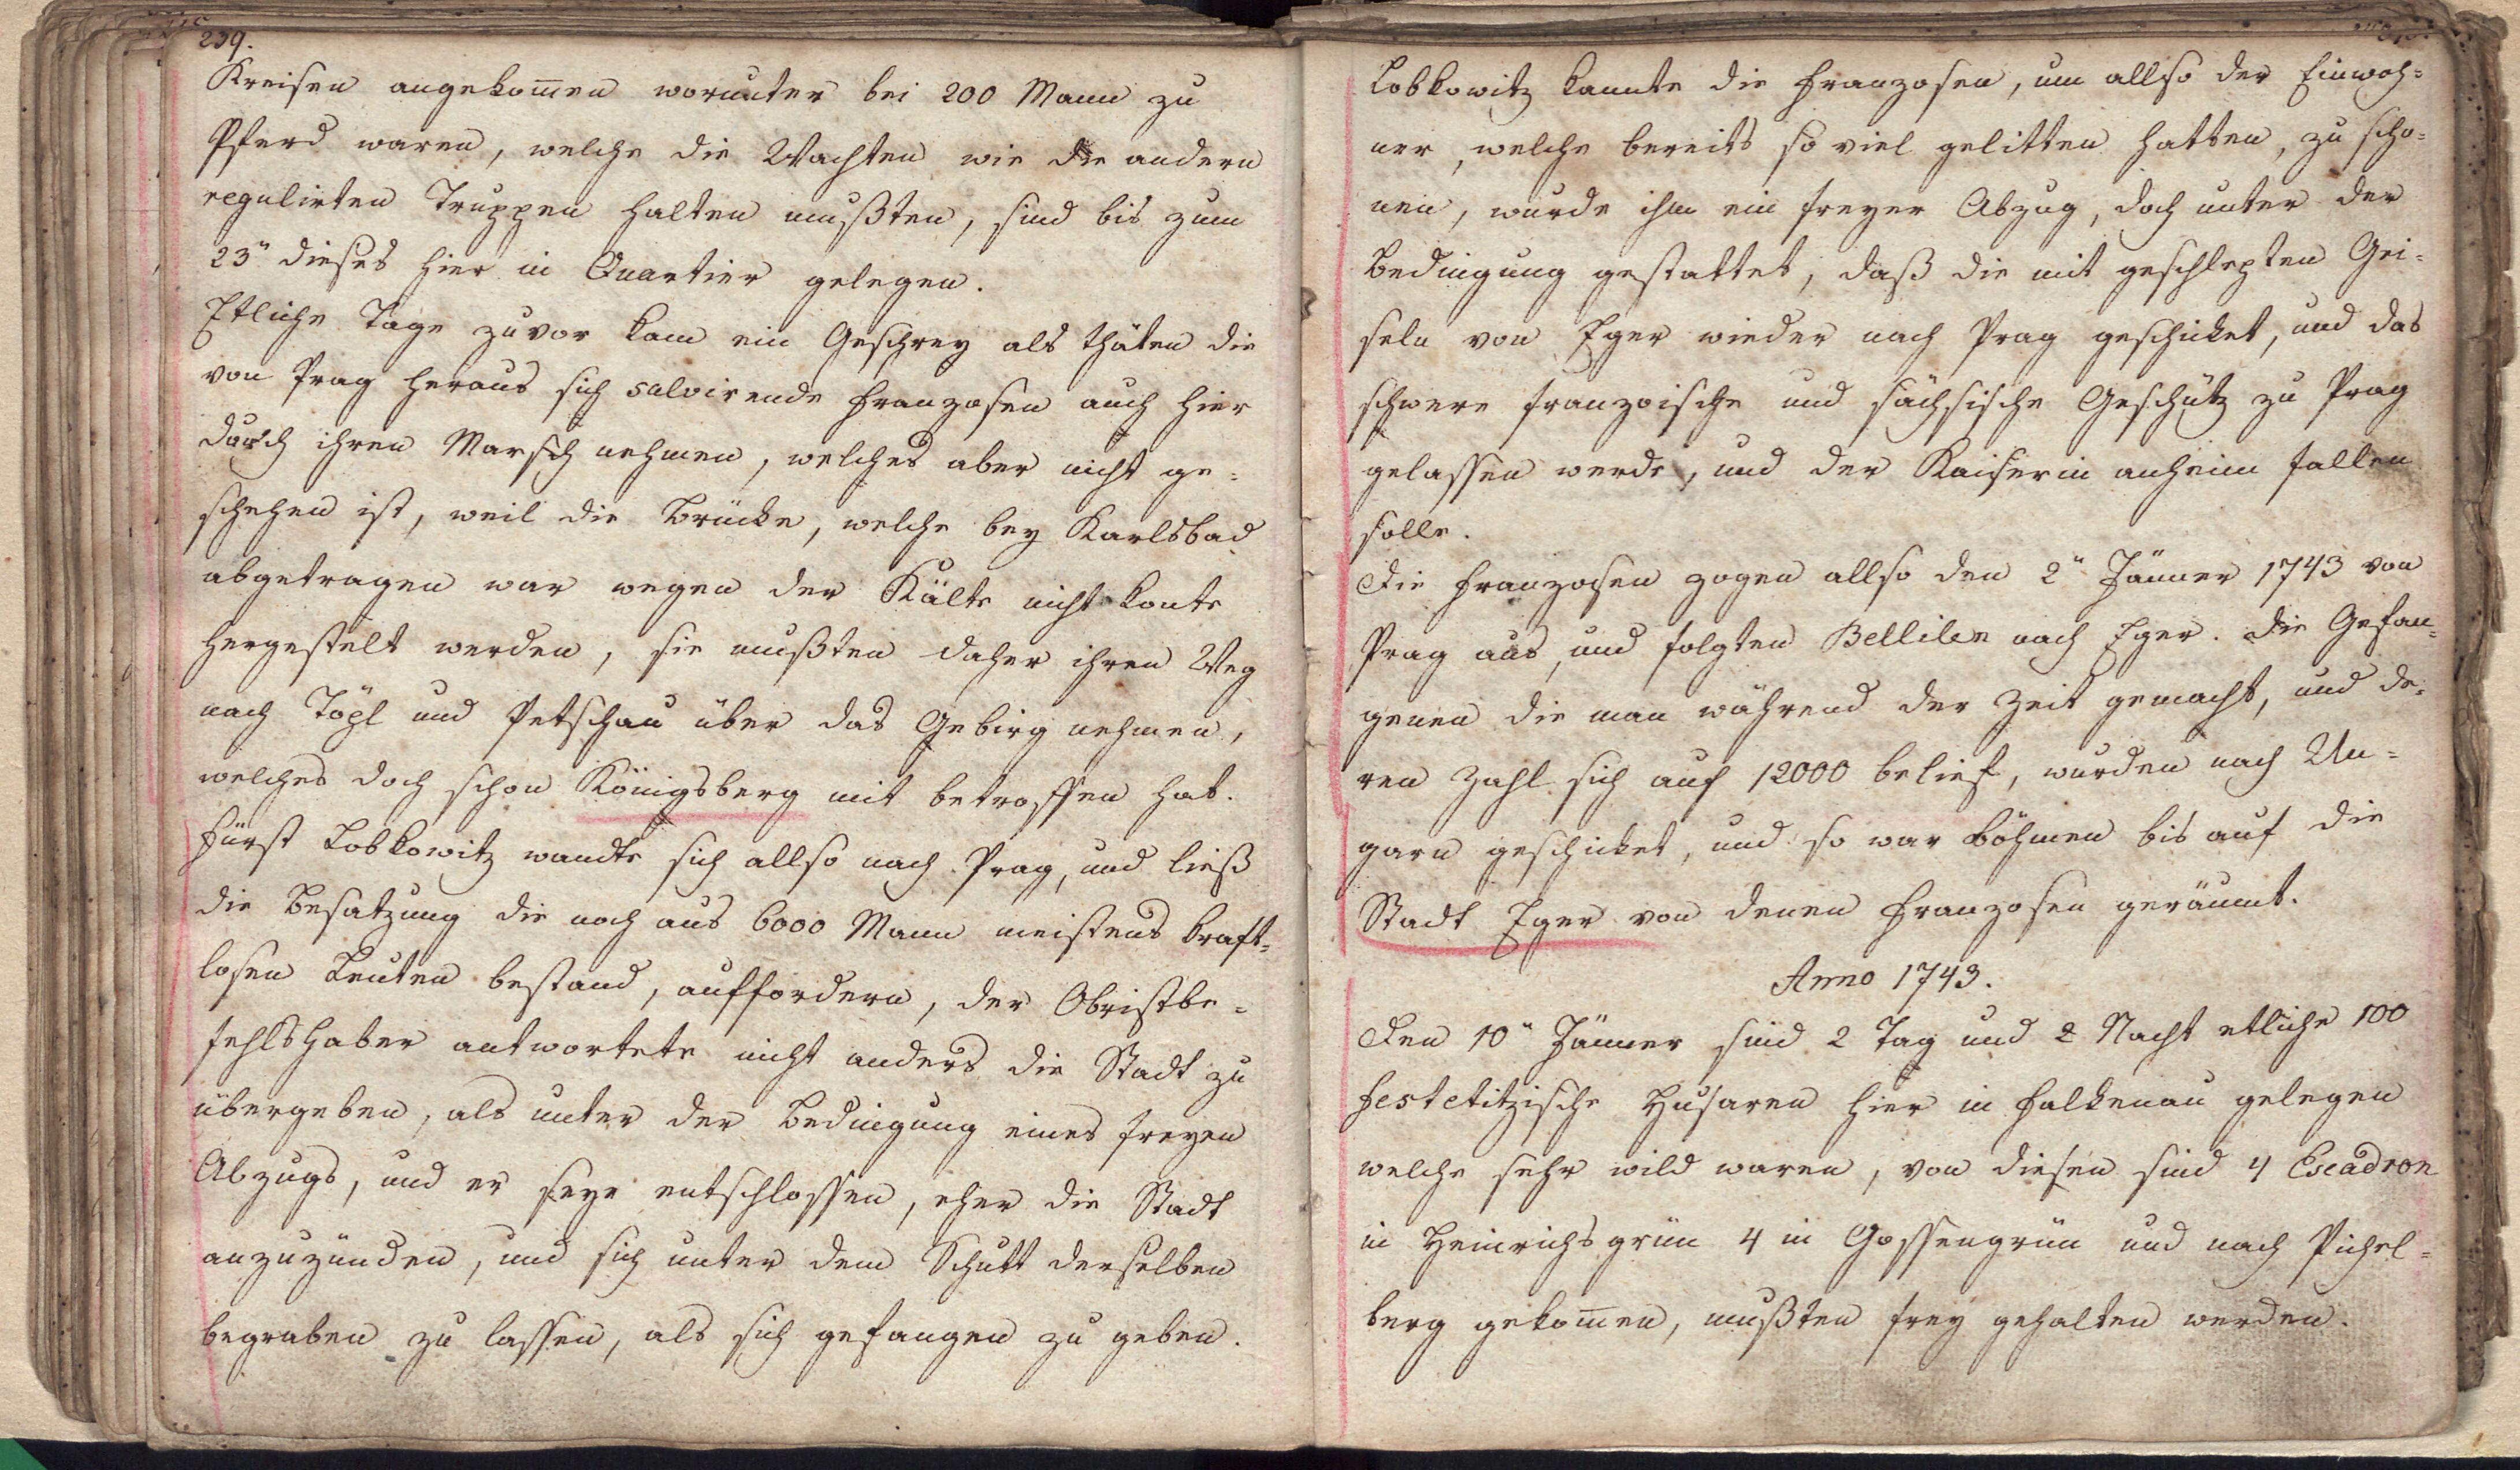 239.
Kreisen angekom̄en worunter bei 200 Mann zu
Pferd waren, welche die Wachten wie die andern
regulirten Truppen halten mußten, sind bis zum
23" dieses hier in Quartier gelegen.
Etliche Tage zuvor kam ein Geschrey als thäten die
von Prag heraus sich salvirende Franzosen auch hier
durch ihren Marsch nehmen, welches aber nicht ge-
schehen ist, weil die Brücke, welche bey Karlsbad
abgetragen war wegen der Kälte nicht konte
hergestelt werden, sie mußten daher ihren Weg
nach Töpl und Petschau über das Gebirg nehmen,
welches doch schon Königsberg mit betroffen hat.
Fürst Lobkowitz wandte sich allso nach Prag, und ließ
die Besatzung die noch aus 6000 Mann meistens kraft-
losen Leuten bestand, auffordern, der Obristbe-
fehlshaber antwortete nicht anders die Stadt zu
übergeben, als unter der Bedingung eines freyen
Abzugs, und er seye entschlossen, eher die Stadt
anzuzünden, und sich unter dem Schutt derselben
begraben zu lassen, als sich gefangen zu geben.
Lobkowitz kannte die Franzosen, um allso der Einwoh-
ner, welche bereits so viel gelitten hatten, zu scho-
nen, wurde ihm ein freyer Abzug, doch unter der
Bedingung gestattet, daß die mit geschlepten Gei-
seln von Eger wieder nach Prag geschicket, und das
schwere franzoische und sächsische Geschütz zu Prag
gelassen werde, und der Kaiserin anheim fallen
solle.
Die Franzosen zogen allso den 2" Jänner 1743 von
Prag aus, und folgten Bellilen nach Eger. Die Gefan-
genen die man während der Zeit gemacht, und de-
ren Zahl sich auf 12000 belief, wurden nach Un-
garn geschicket, und so war Böhmen bis auf die
Stadt Eger von denen Franzosen geräumt.
Anno 1743.
Den 10" Jänner sind 2 Tag und 2 Nacht etliche 100
Festetitzische Husaren hier in Falkenau gelegen
welche sehr wild waren, von diesen sind 4 Escadron
in Heinrichsgrün 4 in Gossengrün und nach Pichel-
berg gekom̄en, mußten frey gehalten werden.